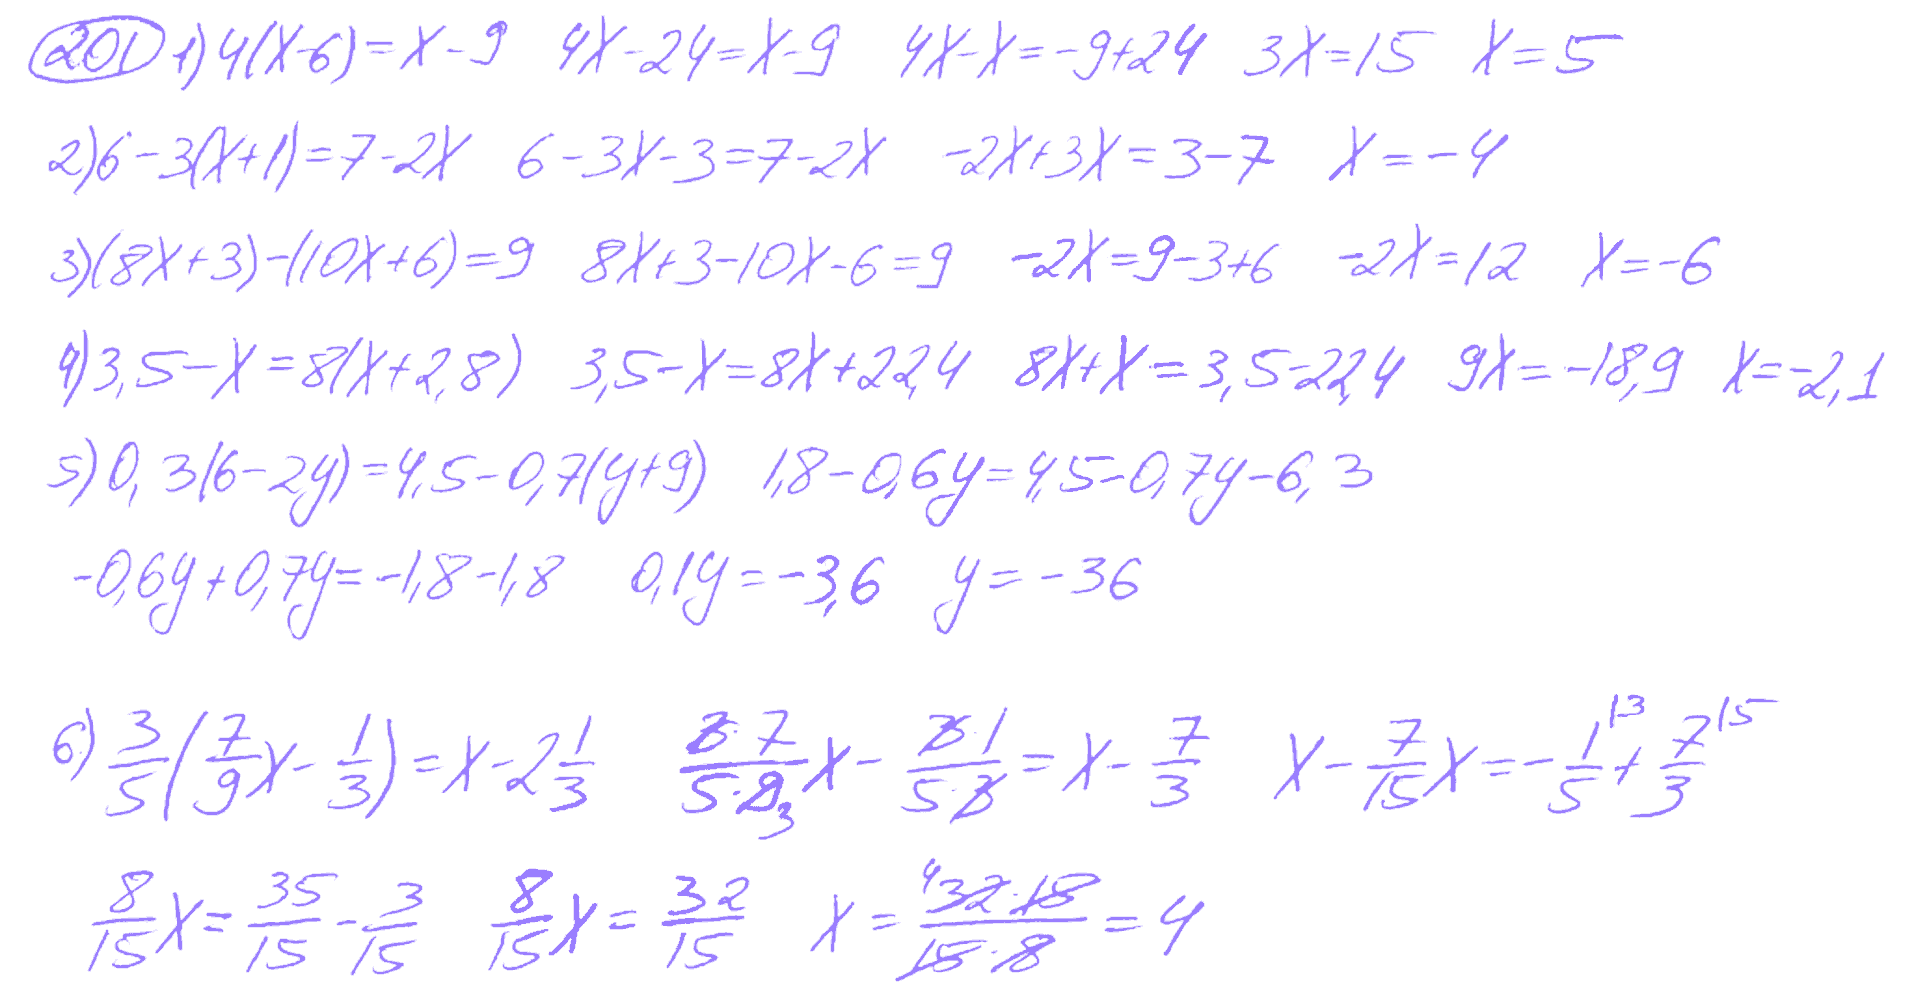 201 1) 4(x-6)=x-9 4x-24=x-9 4x-x=-9+24 3x=15 x=5
2) 6-3(x+1)=7-2x 6-3x-3=7-2x -2x+3x=3-7 x=-4
3) (8x+3)-(10x+6)=9 8x+3-10x-6=9 -2x=9-3+6 -2x=12 x=-6
4) 3,5-x=8(x+2,8) 3,5-x=8x+22,4 8x+x=3,5-22,4 9x=-18,9 x=-2,1
5) 0,3(6-2y)=4,5-0,7(y+9) 1,8-0,6y=4,5-0,7y-6,3
-0,6y+0,7y=-1,8-1,8 0,1y=-3,6 y=-36
6) 3/5(7/9x-1/3)=x-2 1/3 3·7/5·9 3 x-3·1/5·3=x-7/3 x-7/15x=-1/5 |3+7/3 |5
8/15x=35/15-3/15 8/15x=32/15 x=4 32·15/15·8=4